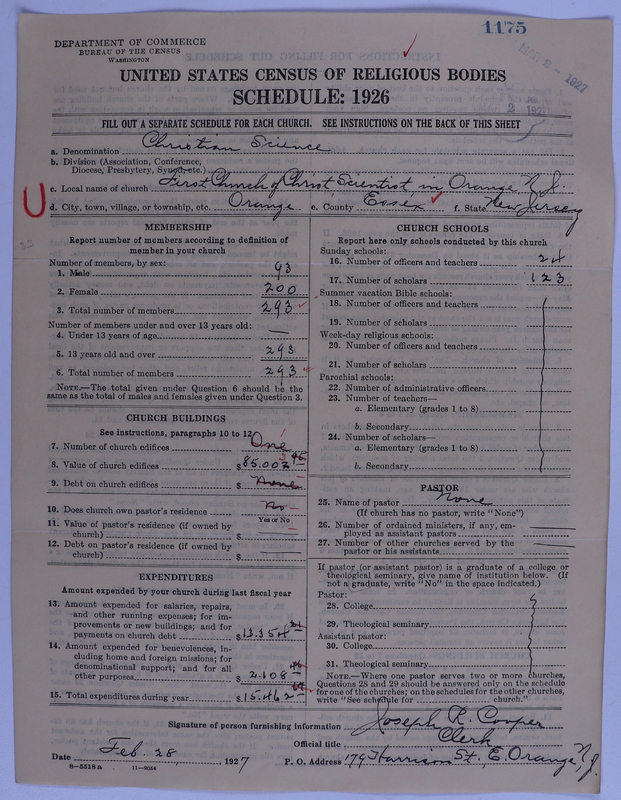 1175
MAR 2 - 1927
DEPARTMENT OF COMMERCE
BUREAU OF THE CENSUS
WASHINGTON
UNITED STATES CENSUS OF RELIGIOUS BODIES
SCHEDULE: 1926
FILL OUT A SEPARATE SCHEDULE FOR EACH CHURCH. SEE INSTRUCTIONS ON THE BACK OF THIS SHEET
a. Denomination Christian Science
b. Division (Association, Conference,
Diocese, Presbytery, Synod, etc.)
c. Local name of church First Church of Christ Scientist in Orange N. J.
d. City, town, village, or township, etc. Orange e. County Essex f. State New Jersey
U
MEMBERSHIP
Report number of members according to definition of
member in your church
Number of members, by sex:
1. Male 93
2. Female 200
3. Total number of members 293
Number of members under and over 13 years old:
4. Under 13 years of age —
5. 13 years old and over 293
6. Total number of members 293
NOTE.—The total given under Question 6 should be the
same as the total of males and females given under Question 3.
CHURCH BUILDINGS
See instructions, paragraphs 10 to 12
7. Number of church edifices One 1
8. Value of church edifices $85.002
9. Debt on church edifices $ None
10. Does church own pastor's residence? No
Yes or No
11. Value of pastor's residence (if owned by
church) $
12. Debt on pastor's residence (if owned by
church) $
EXPENDITURES
Amount expended by your church during last fiscal year
13. Amount expended for salaries, repairs,
and other running expenses; for im-
provements or new buildings; and for
payments on church debt $13.354
14. Amount expended for benevolences, in-
cluding home and foreign missions; for
denominational support; and for all
other purposes $2.108
15. Total expenditures during year $15.462
CHURCH SCHOOLS
Report here only schools conducted by this church
Sunday schools:
16. Number of officers and teachers 24
17. Number of scholars 123
Summer vacation Bible schools:
18. Number of officers and teachers
19. Number of scholars
Week-day religious schools:
20. Number of officers and teachers
21. Number of scholars
Parochial schools:
22. Number of administrative officers
23. Number of teachers—
a. Elementary (grades 1 to 8)
b. Secondary
24. Number of scholars—
a. Elementary (grades 1 to 8)
b. Secondary
PASTOR
25. Name of pastor None
(If church has no pastor, write "None")
26. Number of ordained ministers, if any, em-
ployed as assistant pastors
27. Number of other churches served by the
pastor or his assistants
If pastor (or assistant pastor) is a graduate of a college or
theological seminary, give name of institution below. (If
not a graduate, write "No" in the space indicated.)
Pastor:
28. College
29. Theological seminary
Assistant pastor:
30. College
31. Theological seminary
NOTE.—Where one pastor serves two or more churches,
Questions 28 and 29 should be answered only on the schedule
for one of the churches; on the schedules for the other churches,
write "See schedule for church."
Signature of person furnishing information Joseph R. Cooper
Official title Clerk
Date Feb. 28, 1927 P. O. Address 179 Harrison St. E. Orange, N. J.
8—5518 a 11—9054